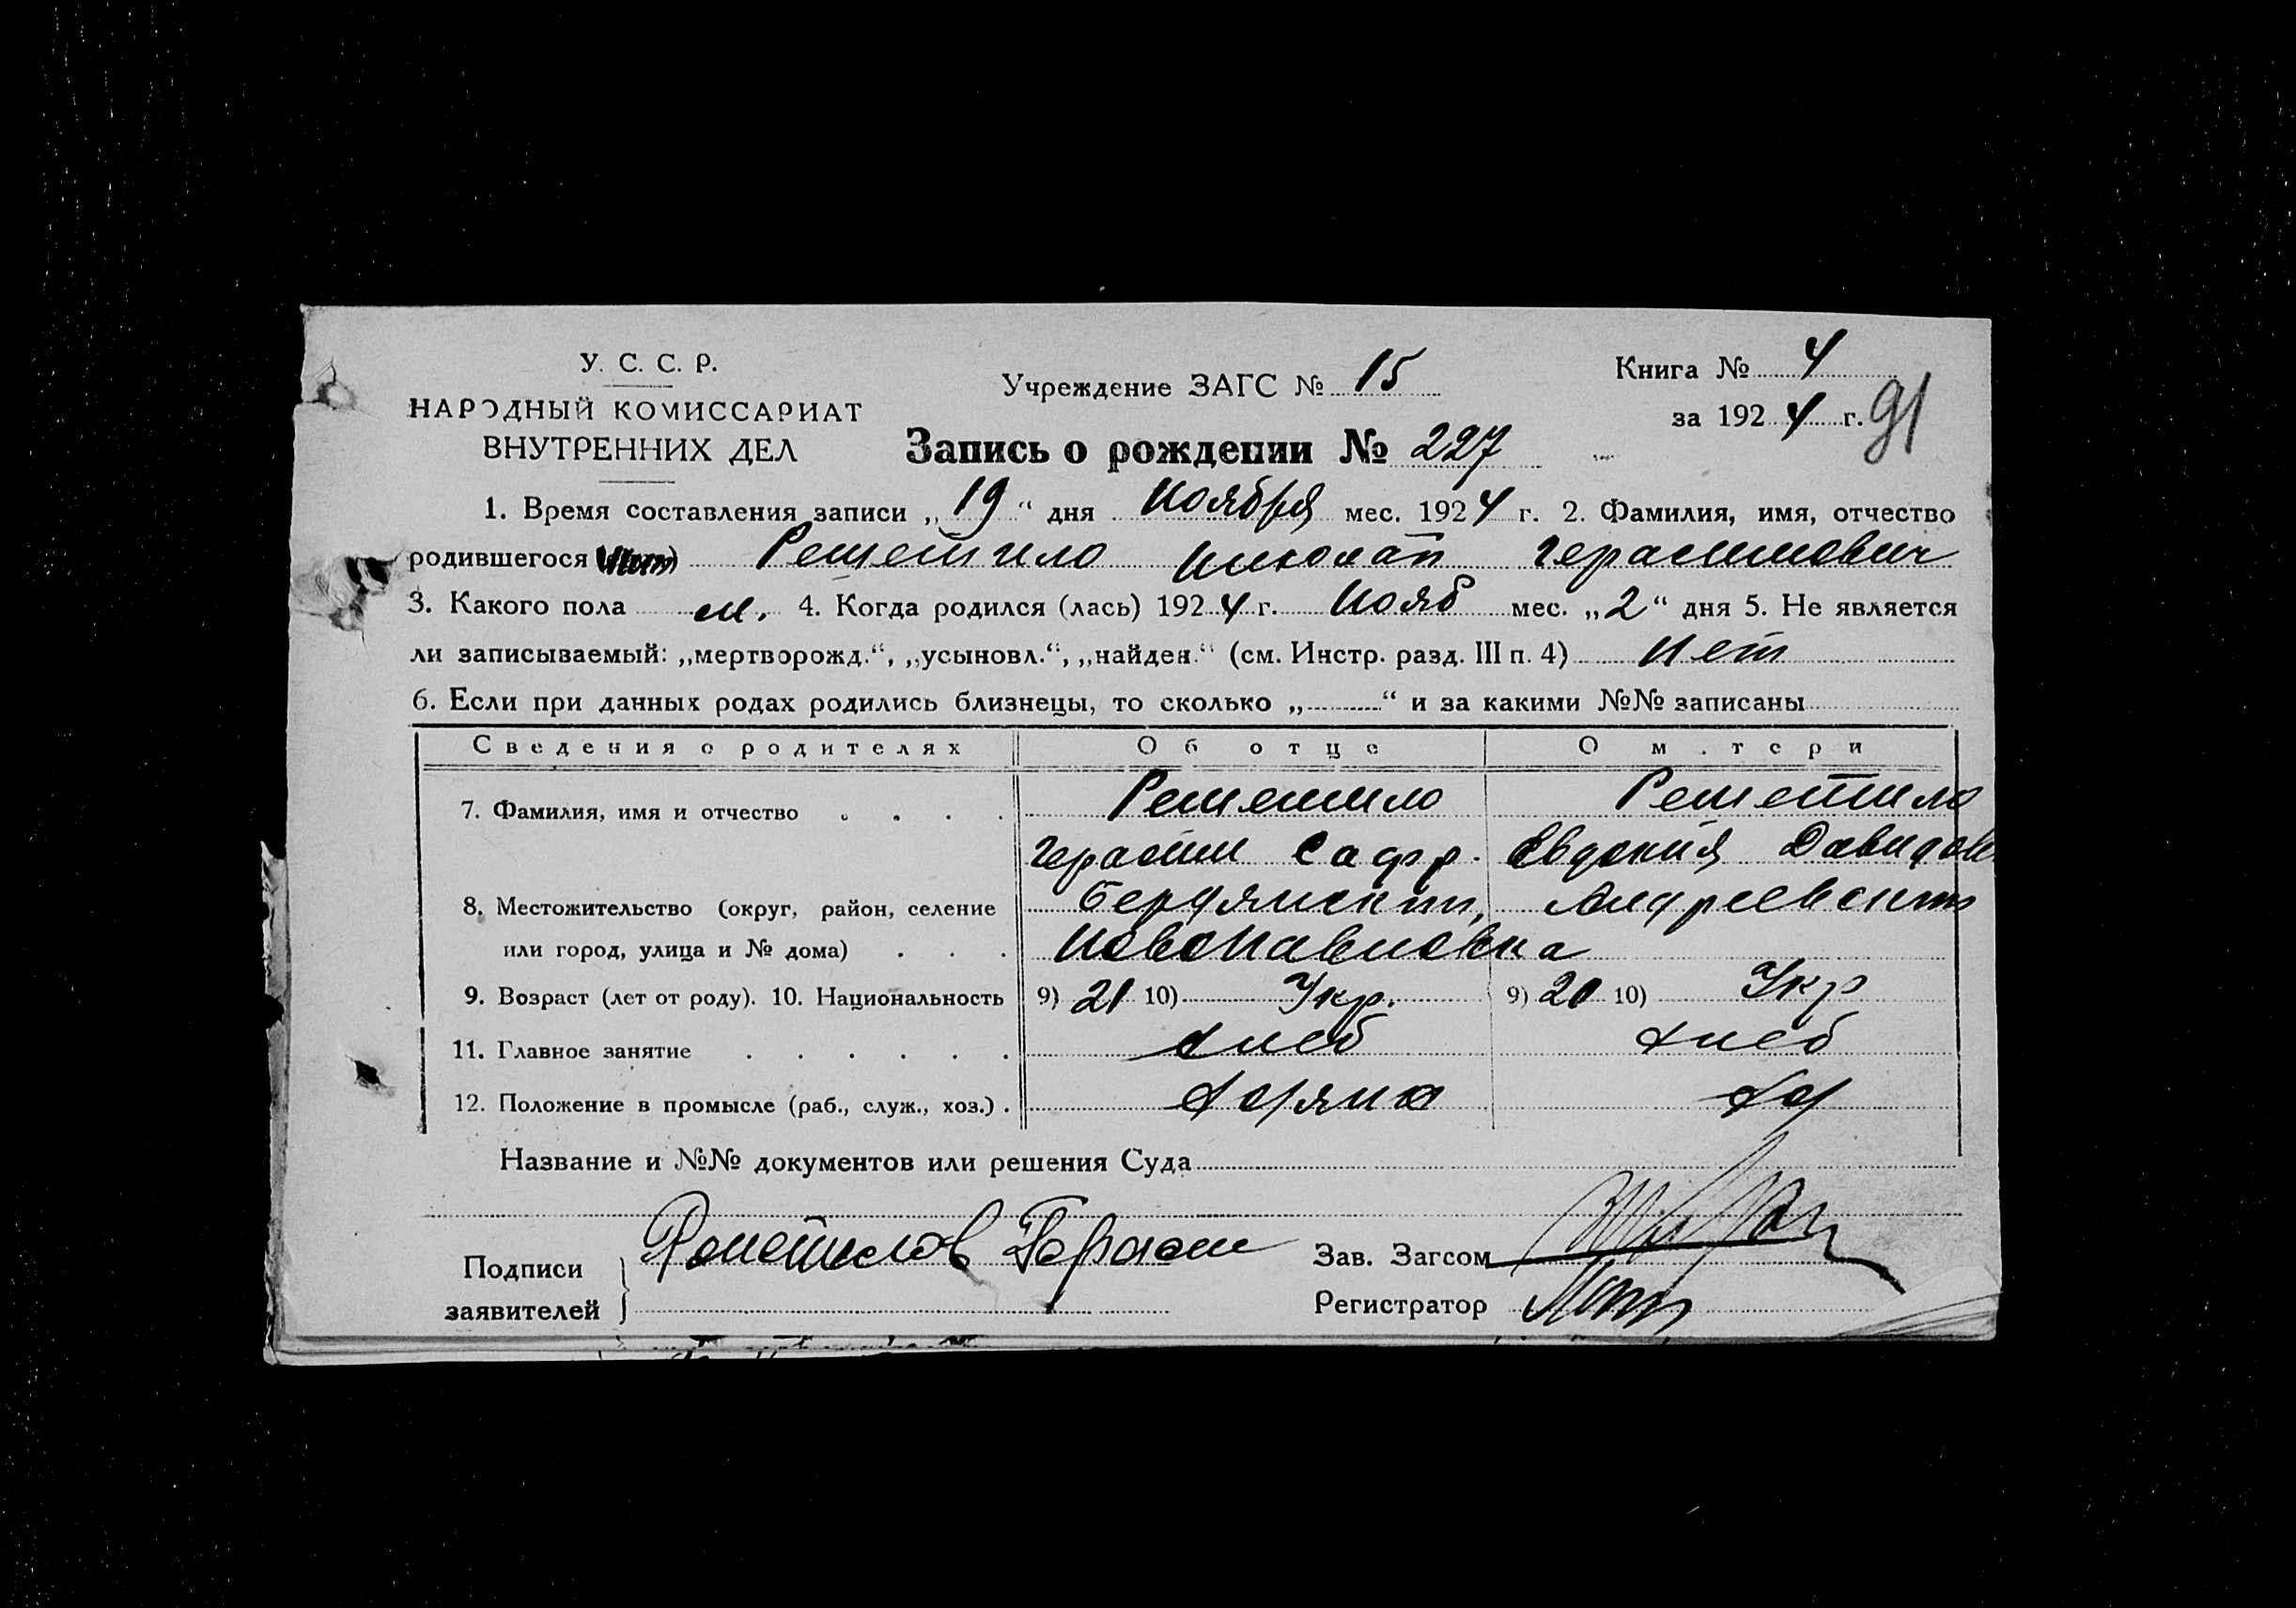 У. С. С. Р.
НАРОДНЫЙ КОМИССАРИАТ
ВНУТРЕННИХ ДЕЛ
Учреждение ЗАГС № 15
Книга № 4
за 1924 г. 91
Запись о рождении № 227
1. Время составления записи „19“ дня Ноября мес. 1924 г. 2. Фамилия, имя, отчество
родившегося Решетило Николай Герасимович
3. Какого пола м. 4. Когда родился (лась) 1924 г. Нояб мес. „2“ дня 5. Не является
ли записываемый: „мертворожд.“, „усыновл.“, „найден.“ (см. Инстр. разд. III п. 4) Нет
6. Если при данных родах родились близнецы, то сколько „ “ и за какими №№ записаны
Сведения о родителях Об отце О матери
7. Фамилия, имя и отчество Решетило Решетило
Герасим Сафр. Евдокия Давидов
8. Местожительство (округ, район, селение Бердянский, Андреевский
или город, улица и № дома) Новопавловка
9. Возраст (лет от роду). 10. Национальность 9) 21 10) Укр. 9) 20 10) Укр
11. Главное занятие хлеб хлеб
12. Положение в промысле (раб., служ., хоз.) хозяин хоз
Название и №№ документов или решения Суда
Подписи Решетилов Герасим Зав. Загсом
заявителей Регистратор